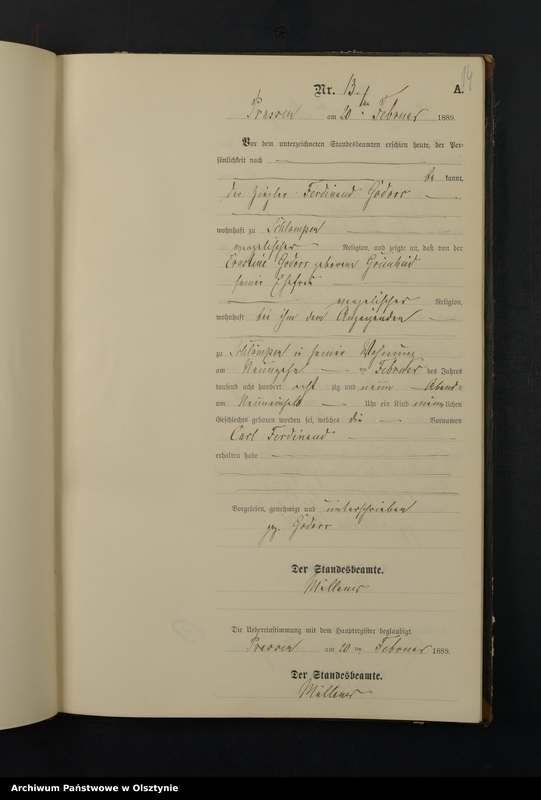 14
Nr. 13. A.
am 20ten Februar 1889.
Vor dem unterzeichneten Standesbeamten erschien heute, der Per-
sönlichkeit nach
be kannt,
der Ziegler Ferdinand Godorr
wohnhaft zu Schlampen
evangelischer Religion, und zeigte an, daß von der
Godorr geborene Grünheid
seiner Ehefrau
evangelischer Religion,
wohnhaft bei ihm dem Anzeigenden
zu Schlampen in seiner Wohnung
am Neunzehnten Februar des Jahres
tausend acht hundert acht zig und neun Abends
um Neuneinhalb Uhr ein Kind männlichen
Geschlechts geboren worden sei, welches die Vornamen
Carl Ferdinand
erhalten habe
Vorgelesen, genehmigt und unterschrieben
gez. Godorr
Der Standesbeamte.
Die Uebereinstimmung mit dem Hauptregister beglaubigt.
am 20ten Februar 1889.
Der Standesbeamte.
Archiwum Państwowe w Olsztynie